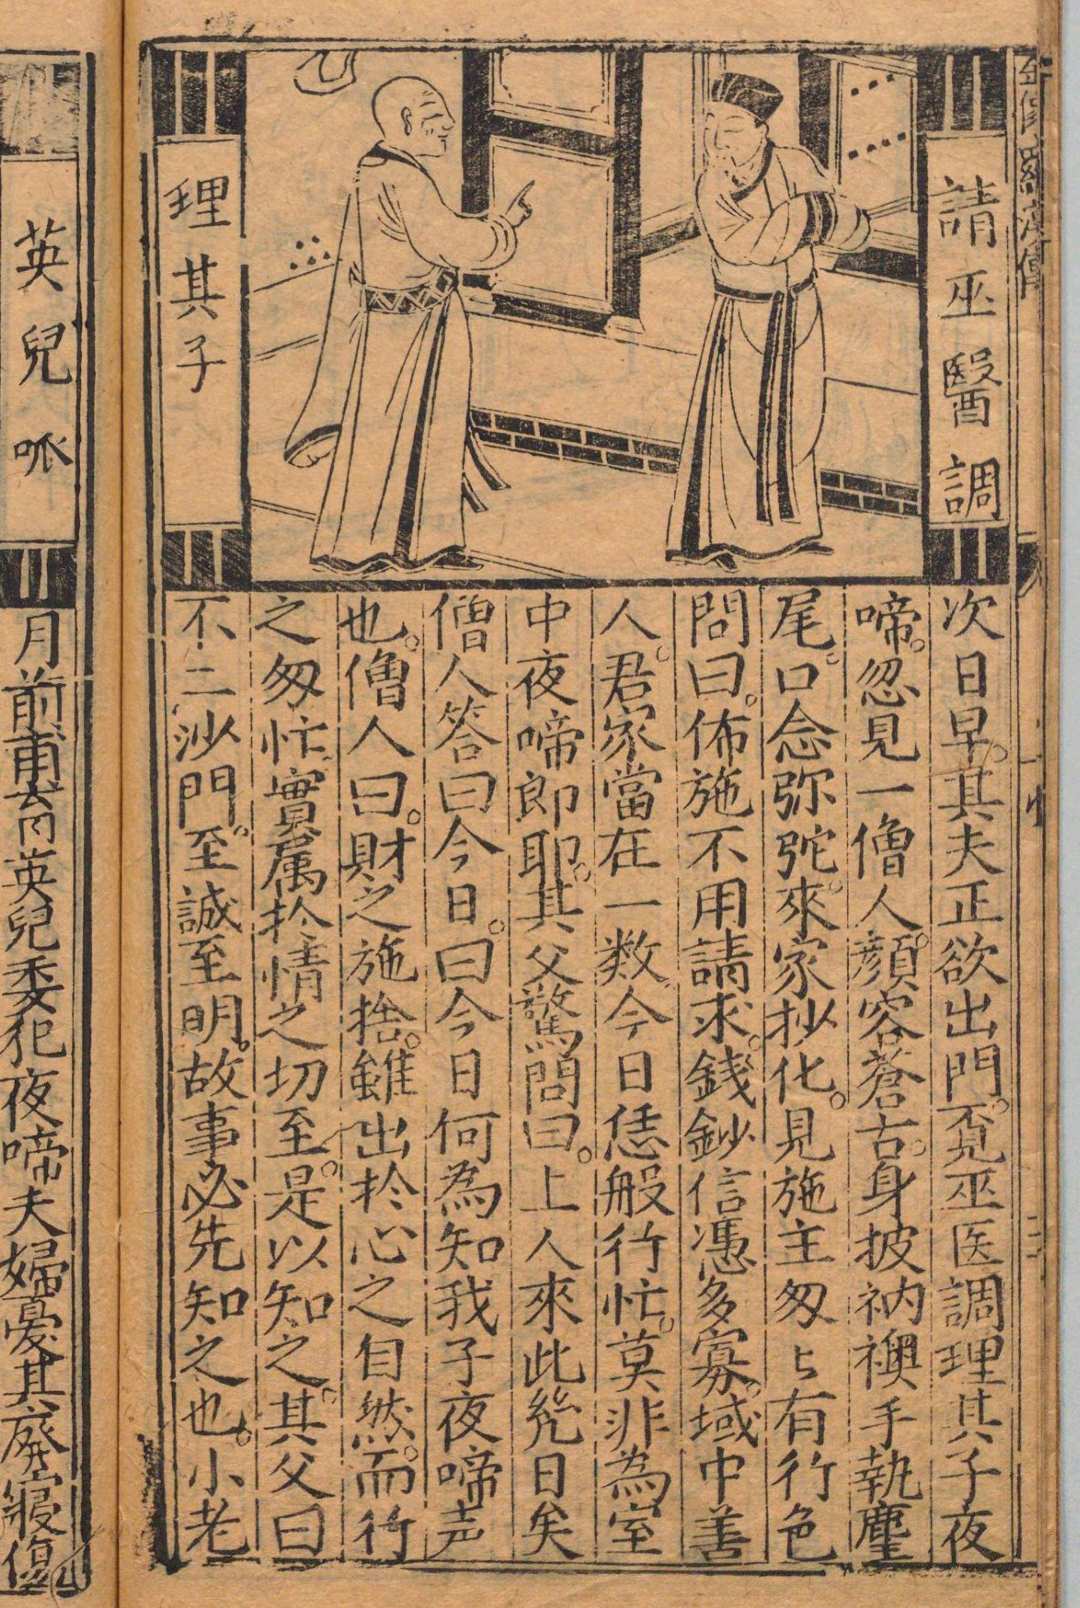 全像羅漢傳
請巫醫調
理其子
次日早。其夫正欲出門。覔巫医調理其子夜
啼。忽見一僧人。顔容蒼古。身披衲襖手執麈
尾。口念弥陀。來家抄化。見施主匆〻有行色
問曰。佈施不用請求。錢鈔信憑多寡。域中善
人。君家當在一数。今日恁般行忙。莫非為室
中夜啼郎耶。其父驚問曰。上人來此㡬日矣
僧人答曰今日。曰今日何為知我子夜啼声
也。僧人曰。財之施捨。雖出扵心之自然。而行
之匆忙。實属扵情之切至。是以知之。其父曰
不二沙門。至誠至明。故事必先知之也。小老
英兒呱
月前。甫育英兒。委犯夜啼。夫婦憂其廢寢傷